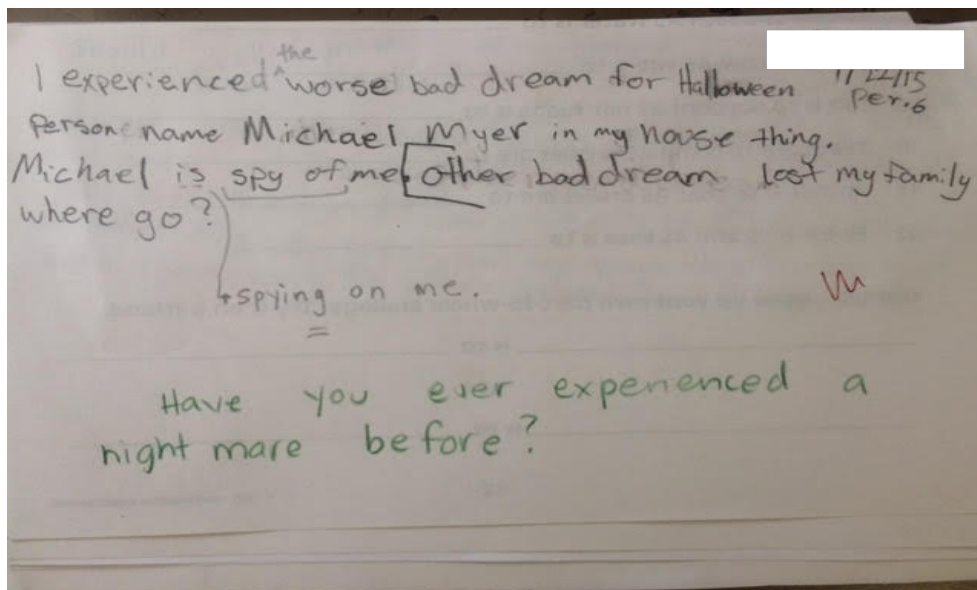 the
I experienced ^ worse bad dream for Halloween 11/22/15
Per.6
Person name Michael Myer in my house thing.
Michael is spy of me other bad dream lost my family
where go?
spying on me.
Have you ever experienced a
night mare before?